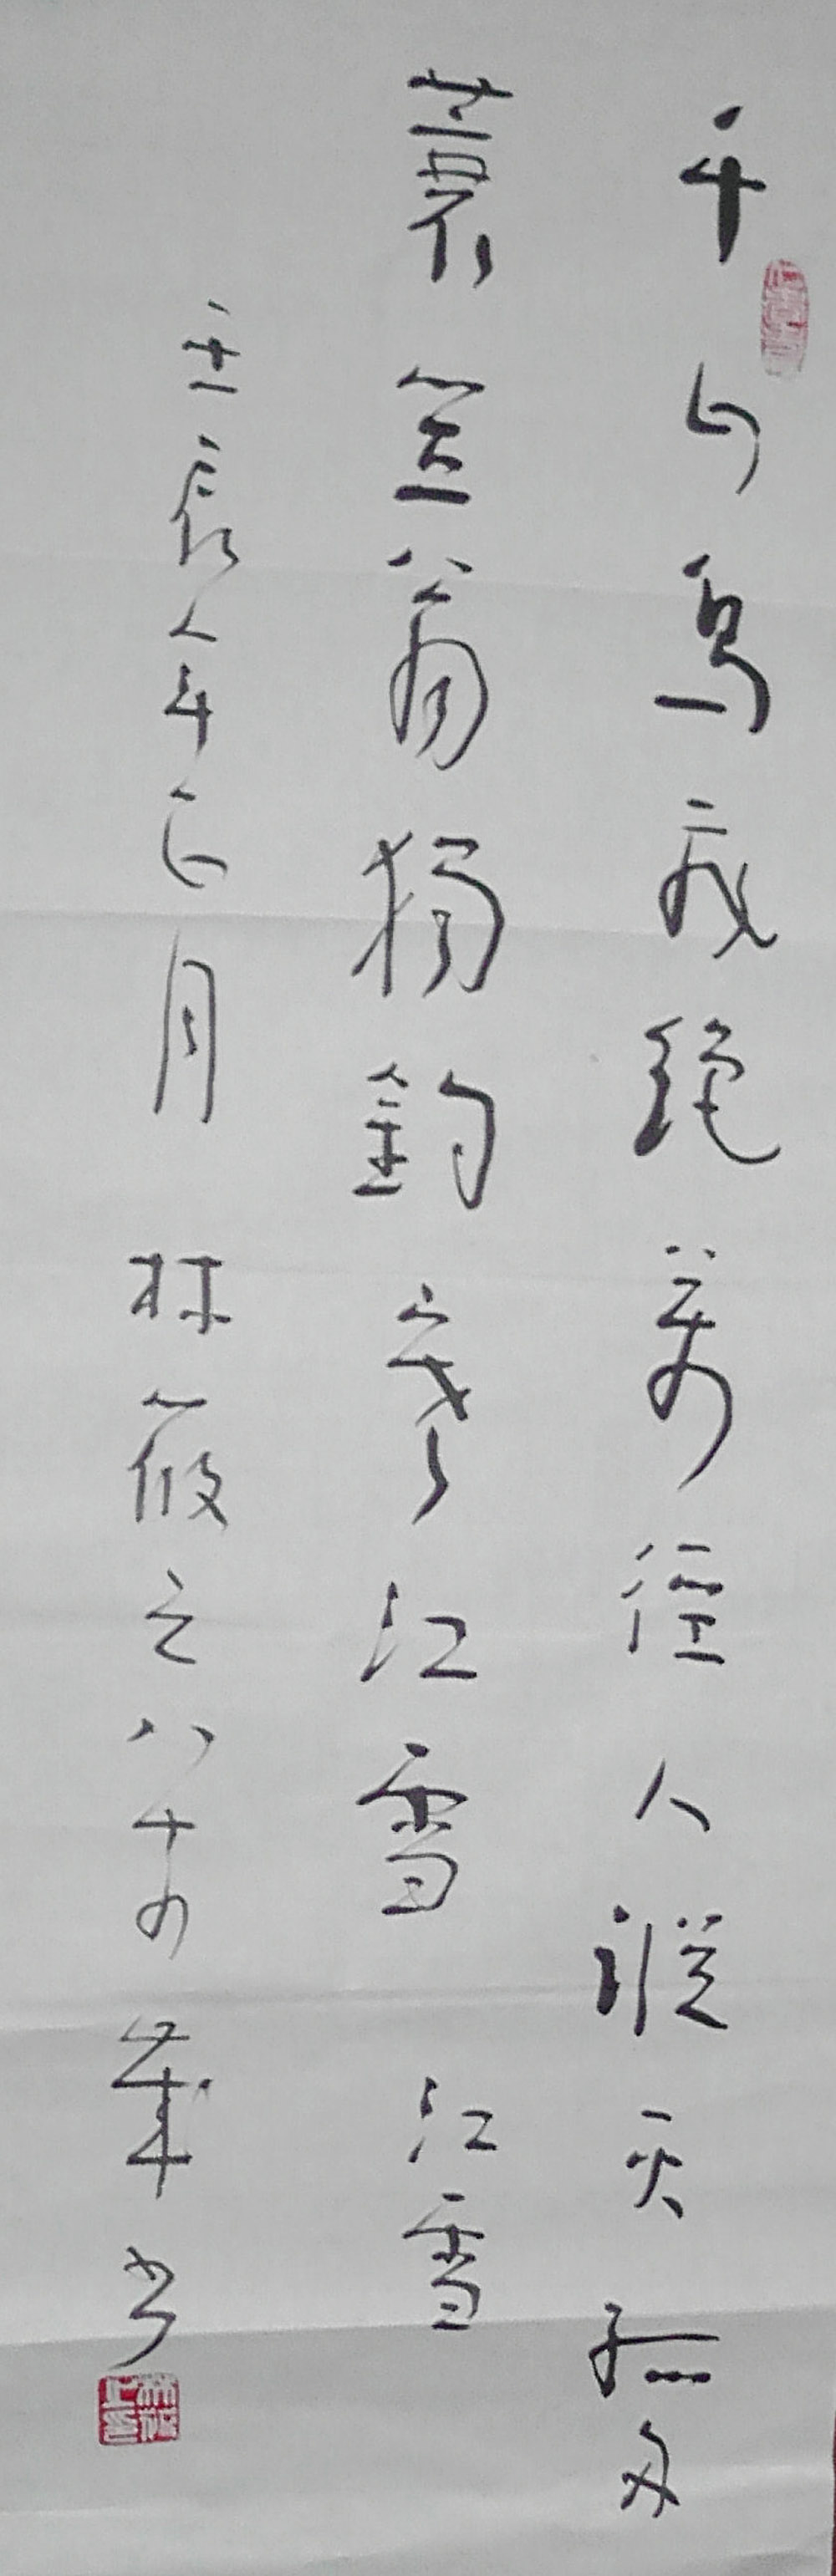 千山鳥飛絕萬徑人蹤灭孤舟
蓑笠翁獨釣寒江雪 江雪
壬辰年正月 林筱之八十四歲書